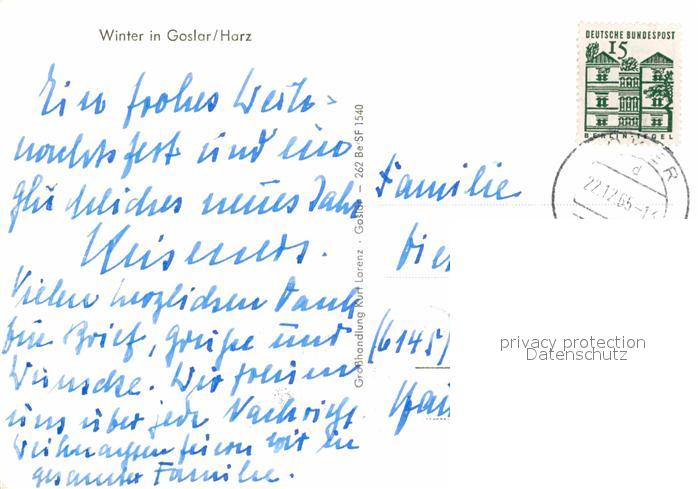 Winter in Goslar/Harz
Ein frohes Weih-
nachtsfest und ein
glückliches neues Jahr
Vielen herzlichen Dank
für Brief, Grüße und
Wünsche. Wir freuen
uns über jede Nachricht
Weihnachten feiern wir in
gesamter Familie.
Großhandlung Kurt Lorenz · Goslar — 262 Be SF 1540
DEUTSCHE BUNDESPOST
15
BERLIN-TEGEL
d
22.12.65-1
Familie
Die
(6145)
privacy protection
Datenschutz